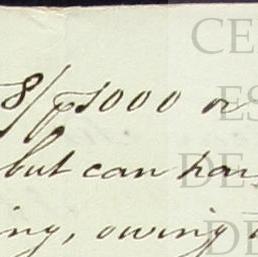 8/ p 1000 or
but can har
ing, owing
CE
ES
DE
DE